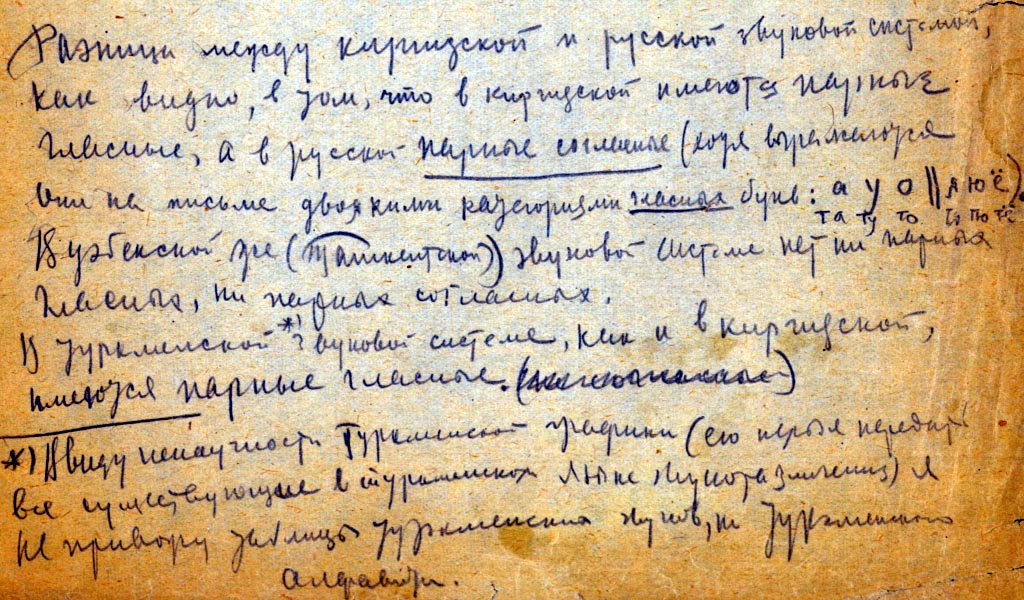 Разница между киргизской и русской звуковой системой,
как видно, в том, что в киргизской имеются парные
гласные, а в русской парные согласные (хотя выражаются
они на письме двоякими категориями гласных букв: а у о || я ю ё).
та ту то тя тю тё
В узбекской же (Ташкентской) звуковой системе нет ни парных
гласных, ни парных согласных.
В туркменской *) звуковой системе, как и в киргизской,
имеются парные гласные.
*) Ввиду ненаучности Туркменской графики (ею нельзя передать
все существующие в туркменском языке звукоразличения) я
не привожу таблицы туркменских звуков, ни туркменского
алфавита.